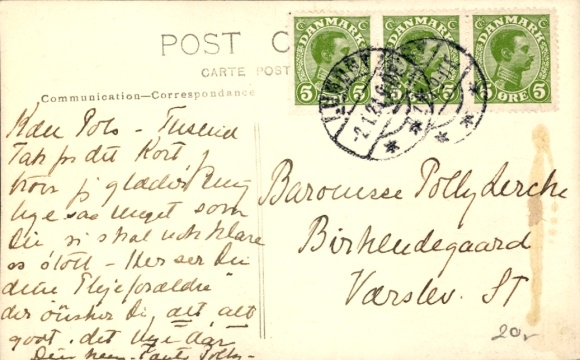 POST C
CARTE POST
Communication—Correspondance
DANMARK DANMARK DANMARK
5 5 5 ØRE 5
2.1.2
Kære Pols - Tusend
Tak for dit Kort, j
tror j glæder mig
lige saa meget som
Du vi skal nok klare
os flott - Her ser Du
dine Plejeforældre
der ønsker Dig alt alt
godt i det nye Aar
Din hen. Tante
Baronesse Polly
Birkendegaard
Værslev. St
20,-